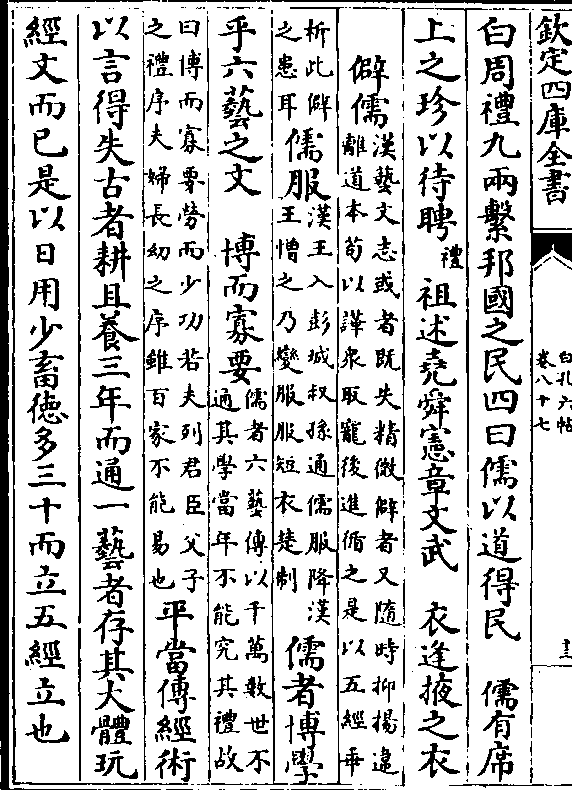 欽定四庫全書
白孔六帖
卷八十七
白周禮九兩繫邦國之民四曰儒以道得民　儒有席
上之珍以待聘禮　祖述堯舜憲章文武　衣逢掖之衣
僻儒漢藝文志或者既失精微僻者又隨時抑揚違
離道本苟以譁衆取寵後進循之是以五經乖
析此僻
之患耳儒服漢王入彭城叔孫通儒服降漢
王憎之乃變服服短衣楚制　儒者博學
乎六藝之文　博而寡要儒者六藝傳以千萬數世不
通其學當年不能究其禮故
曰博而寡要勞而少功若夫列君臣父子
之禮序夫婦長幼之序雖百家不能易也平當傳經術
以言得失古者耕且養三年而通一藝者存其大體玩
經文而已是以日用少畜德多三十而立五經立也